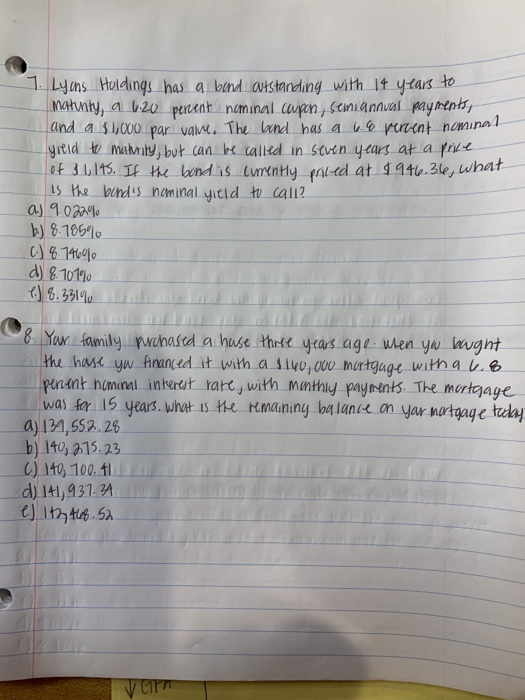 7. Lyons Holdings has a bond outstanding with 14 years to
maturity, a 6.20 percent nominal coupon, semiannual payments,
and a $1,000 par value. The bond has a 6.8 percent nominal
yield to maturity, but can be called in seven years at a price
of $1,145. If the bond is currently priced at $946.36, what
is the bond's nominal yield to call?
a.) 9.022%
b.) 8.785%
c.) 8.746%
d.) 8.707%
e.) 8.331%
8. Your family purchased a house three years ago. When you bought
the house you financed it with a $160,000 mortgage with a 6.8
percent nominal interest rate, with monthly payments. The mortgage
was for 15 years. What is the remaining balance on your mortgage today
a) 139,552.28
b) 140,275.23
c) 140,700.41
d) 141,937.34
e) 142,468.52